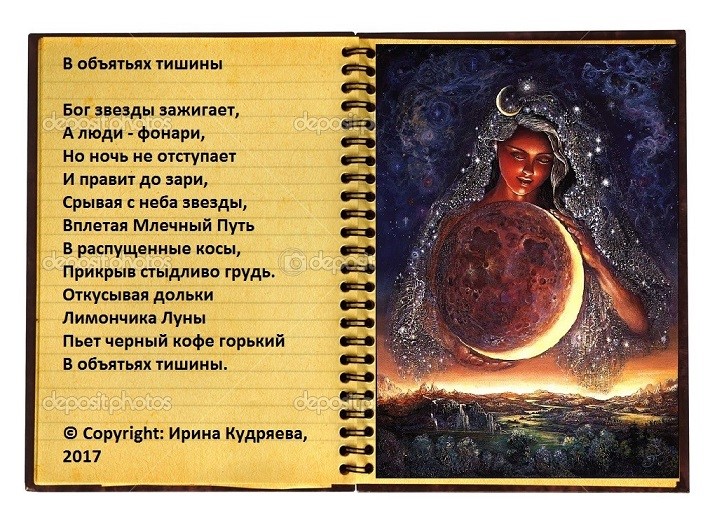 В объятьях тишины
Бог звезды зажигает,
А люди - фонари,
Но ночь не отступает
И правит до зари,
Срывая с неба звезды,
Вплетая Млечный Путь
В распущенные косы,
Прикрыв стыдливо грудь.
Откусывая дольки
Лимончика Луны
Пьет черный кофе горький
В объятьях тишины.
© Copyright: Ирина Кудряева,
2017
depositphotos
depositphotos
depositphotos
depositphotos